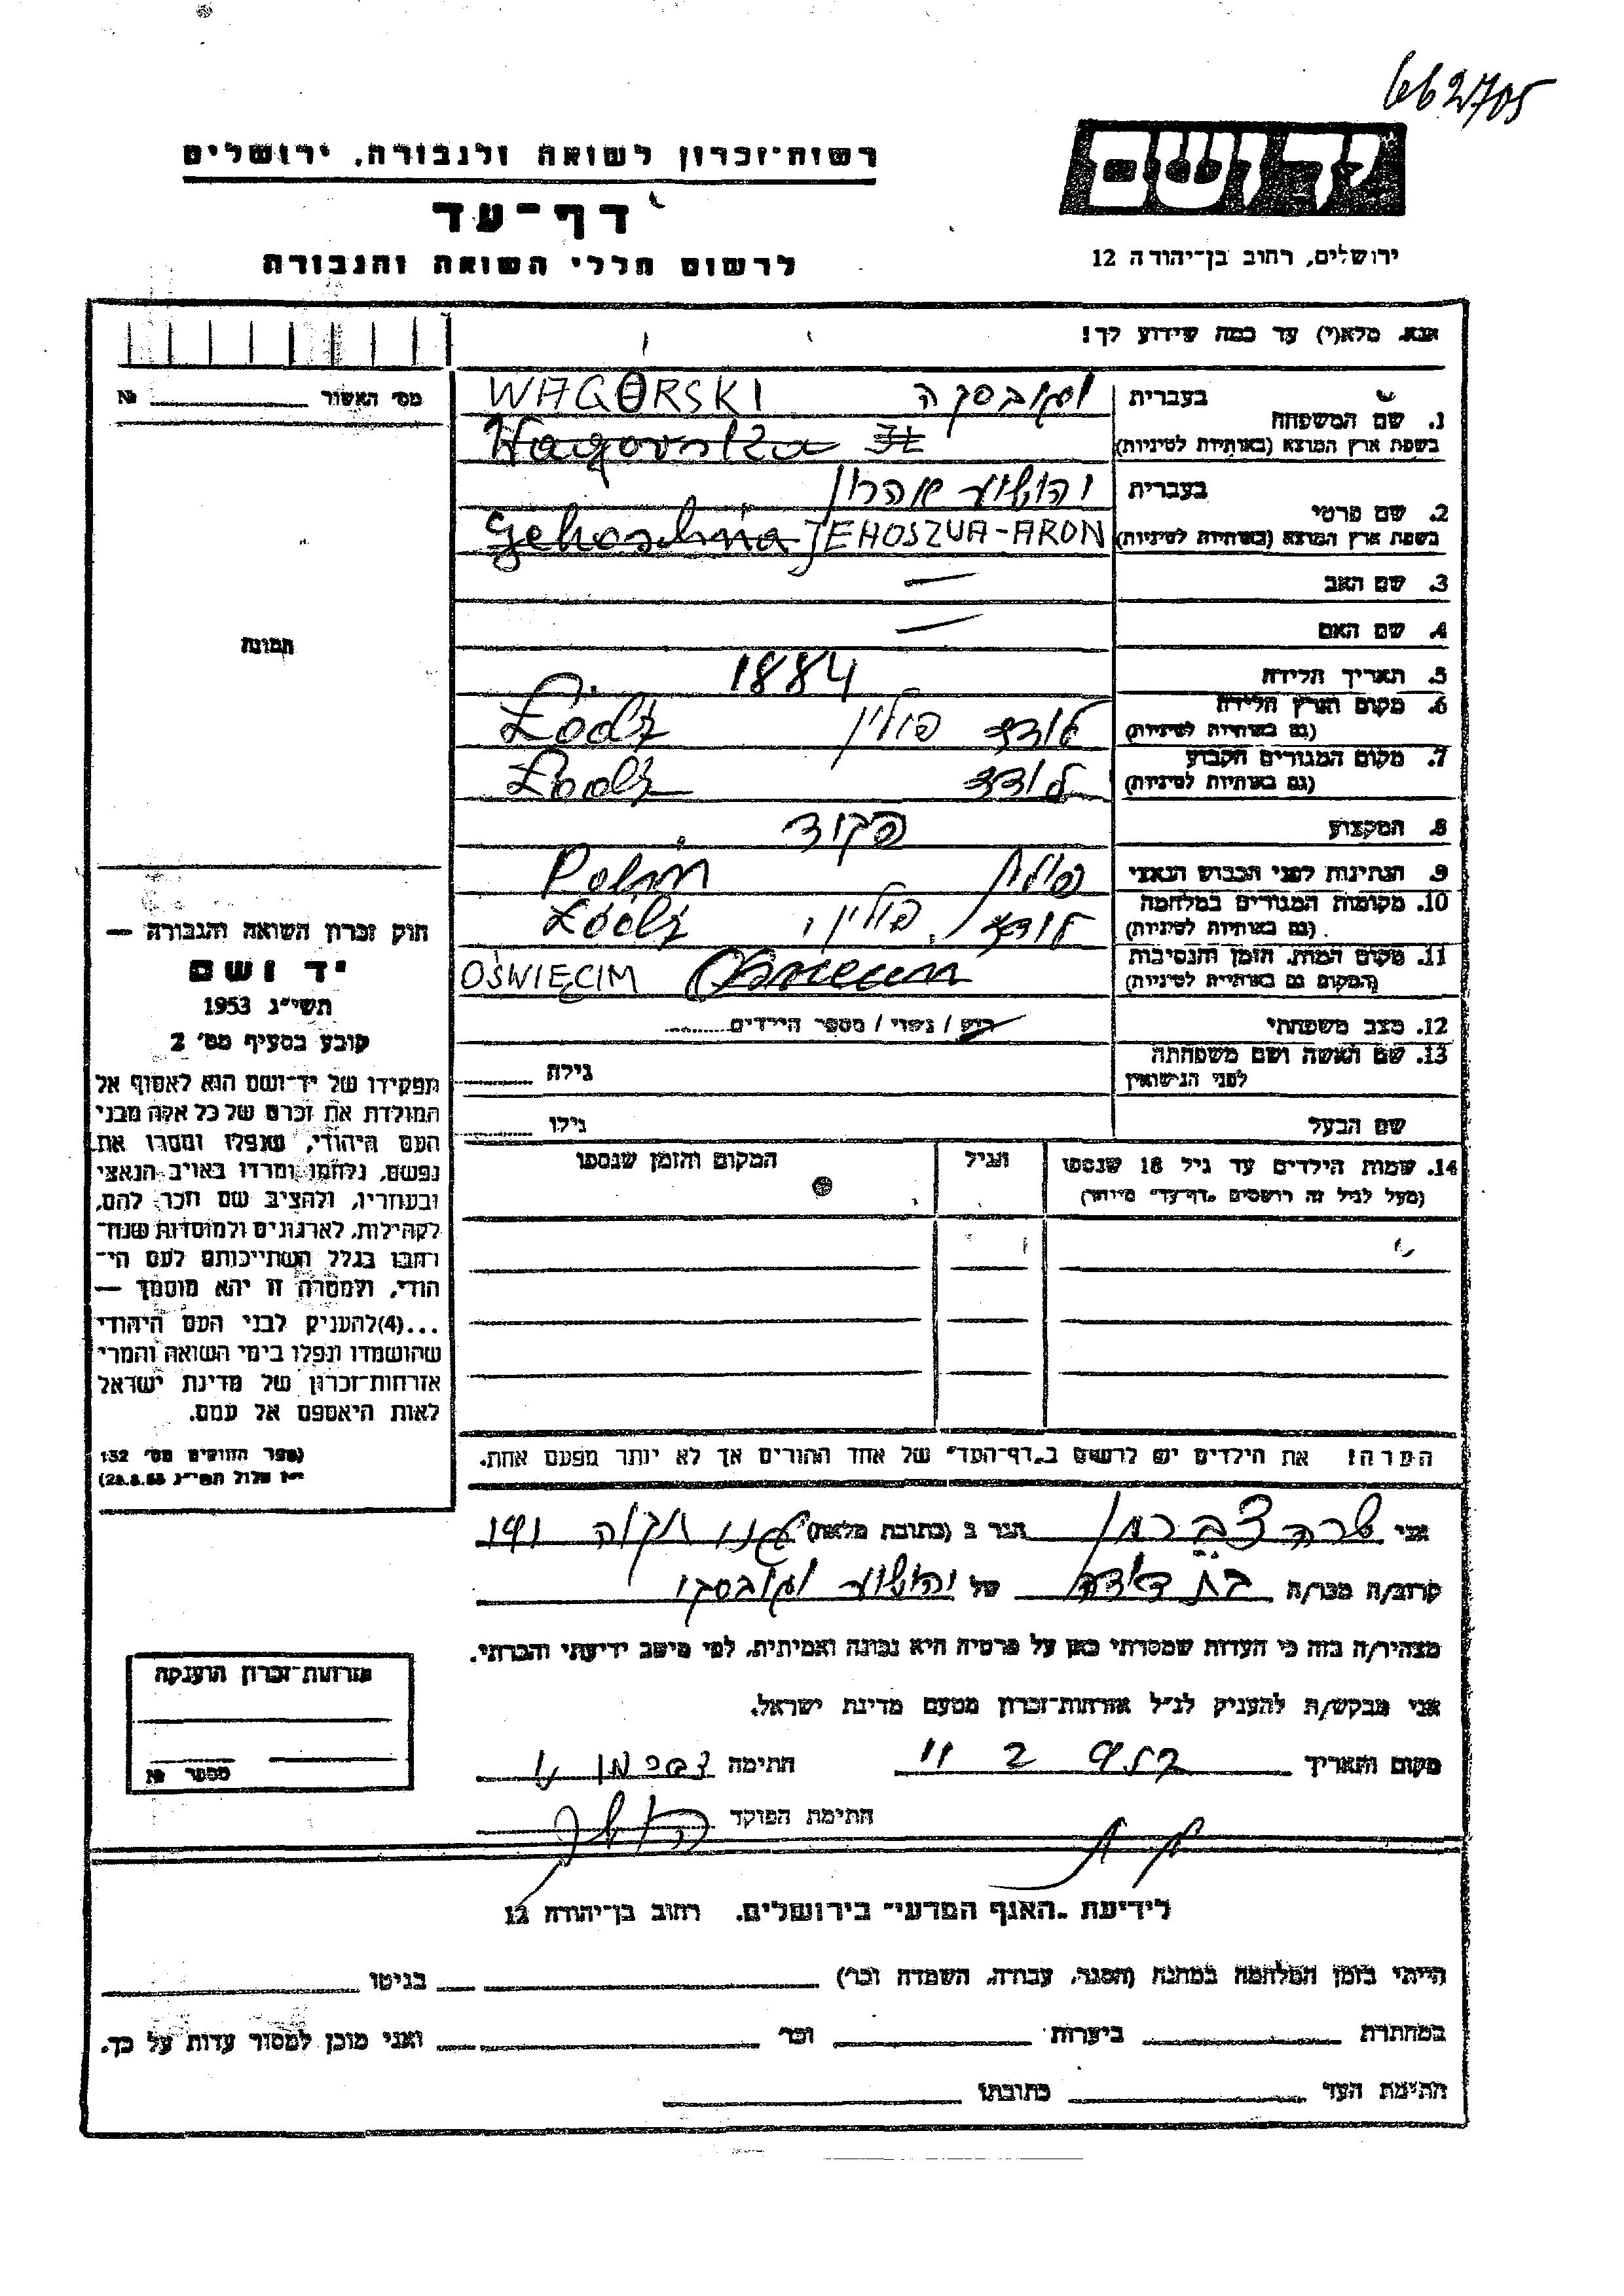 662705
יד ושם
ירושלים, רחוב בן־יהודה 12
רשות־זכרון לשואה ולגבורה, ירושלים
דף־עד
לרשום חללי השואה והגבורה
אנא, מלא(י) עד כמה שידוע לך!
מס׳ האשור № 
1. שם המשפחה
בעברית
WAGORSKI
בשפת ארץ המוצא (באותיות לטיניות)
2. שם פרטי
בעברית יהושוע אהרון
בשפת ארץ המוצא (באותיות לטיניות) JEHOSZUA-ARON
3. שם האב —
4. שם האם —
5. תאריך הלידה 1884
6. מקום וארץ הלידה
(גם באותיות לטיניות) לודז פולין Łodz
7. מקום המגורים הקבוע
(גם באותיות לטיניות) לודז Łodz
8. המקצוע פקיד
9. הנתינות לפני הכבוש הנאצי
10. מקומות המגורים במלחמה
(גם באותיות לטיניות) לודז, פולין, Łódź
11. מקום המות, הזמן והנסיבות
(המקום גם באותיות לטיניות) OŚWIĘCIM
12. מצב משפחתי רווק / נשוי / מספר הילדים
13. שם האשה ושם משפחתה
לפני הנישואין
גילה
שם הבעל גילו
14. שמות הילדים עד גיל 18 שנספו
(מעל לגיל זה רושמים „דף־עד״ מיוחד)
הגיל
המקום והזמן שנספו
הערה! את הילדים יש לרשום ב„דף־העד״ של אחד ההורים אך לא יותר מפעם אחת.
תמונה
חוק זכרון השואה והגבורה —
יד ושם
תשי״ג 1953
קובע בסעיף מס׳ 2
תפקידו של יד־ושם הוא לאסוף אל
המולדת את זכרם של כל אלה מבני
העם היהודי, שנפלו ומסרו את
נפשם, נלחמו ומרדו באויב הנאצי
ובעוזריו, ולהציב שם וזכר להם,
לקהילות, לארגונים ולמוסדות שנח־
רבו בגלל השתייכותם לעם הי־
הודי, ולמטרה זו יהא מוסמך —
...(4)להעניק לבני העם היהודי
שהושמדו ונפלו בימי השואה והמרי
אזרחות־זכרון של מדינת ישראל
לאות היאספם אל עמם.
(ספר החוקים מס׳ 132
י״ז אלול תשי״ג 28.8.53)
אני שרה צברמן הגר ב (כתובת מלאה)
קרוב/ה מכר/ה בת דודה של יהושוע
מצהיר/ה בזה כי העדות שמסרתי כאן על פרטיה היא נכונה ואמיתית, לפי מיטב ידיעתי והכרתי.
אני מבקש/ת להעניק לנ״ל אזרחות־זכרון מטעם מדינת ישראל.
מקום ותאריך חתימה צברמן ש
חתימת הפוקד
אזרחות־זכרון הוענקה
מספר №
לידיעת „האגף המדעי״ בירושלים, רחוב בן־יהודה 12
הייתי בזמן המלחמה במחנה (הסגר, עבודה, השמדה וכר׳) בגיטו
במחתרת ביערות וכר׳ ואני מוכן למסור עדות על כך.
חתימת העד כתובתו